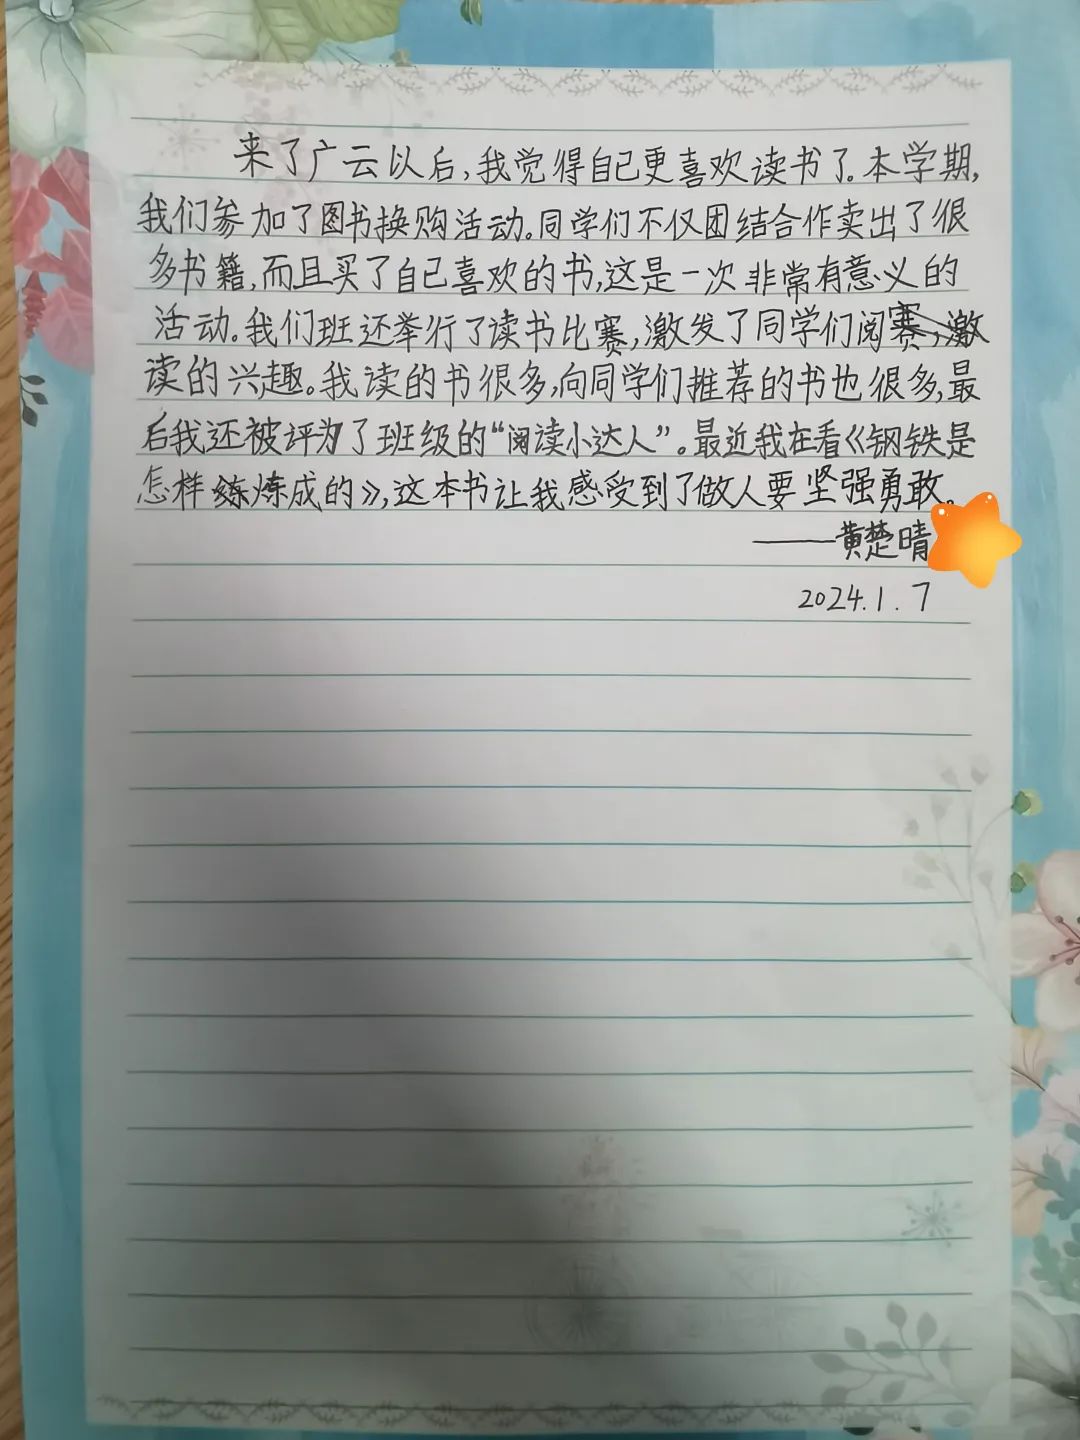 来了广云以后,我觉得自己更喜欢读书了。本学期,
我们参加了图书换购活动。同学们不仅团结合作卖出了很
多书籍,而且买了自己喜欢的书,这是一次非常有意义的
活动。我们班还举行了读书比赛,激发了同学们阅
读的兴趣。我读的书很多,向同学们推荐的书也很多,最
后我还被评为了班级的“阅读小达人”。最近我在看《钢铁是
怎样炼成的》,这本书让我感受到了做人要坚强勇敢。
——黄楚晴
2024.1.7